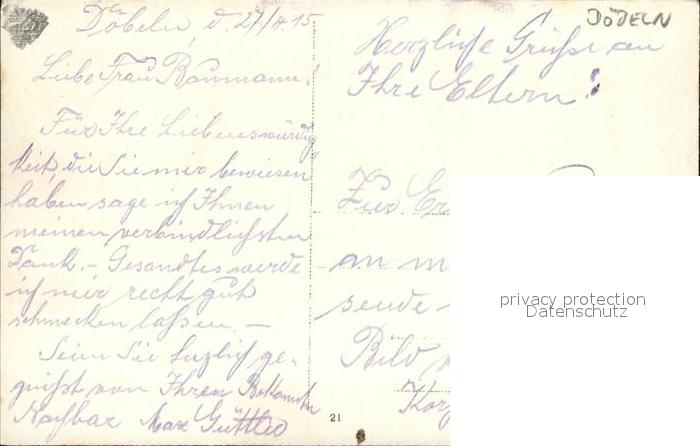 Döbeln, d. 27/4.15.
Liebe Frau Baumann!
Für Ihre Liebenswürdig
keit, die Sie mir bewiesen
haben sage ich Ihnen
meinen verbindlichsten
Dank. – Gesandtes werde
ich mir recht gut
schmecken lassen. –
Seien Sie herzlich ge-
grüßt von Ihrem Bekannten
Nachbar Max
DÖBELN
Herzliche Grüße an
Ihre Eltern!
Zur
an
sende
Bild
21
privacy protection
Datenschutz